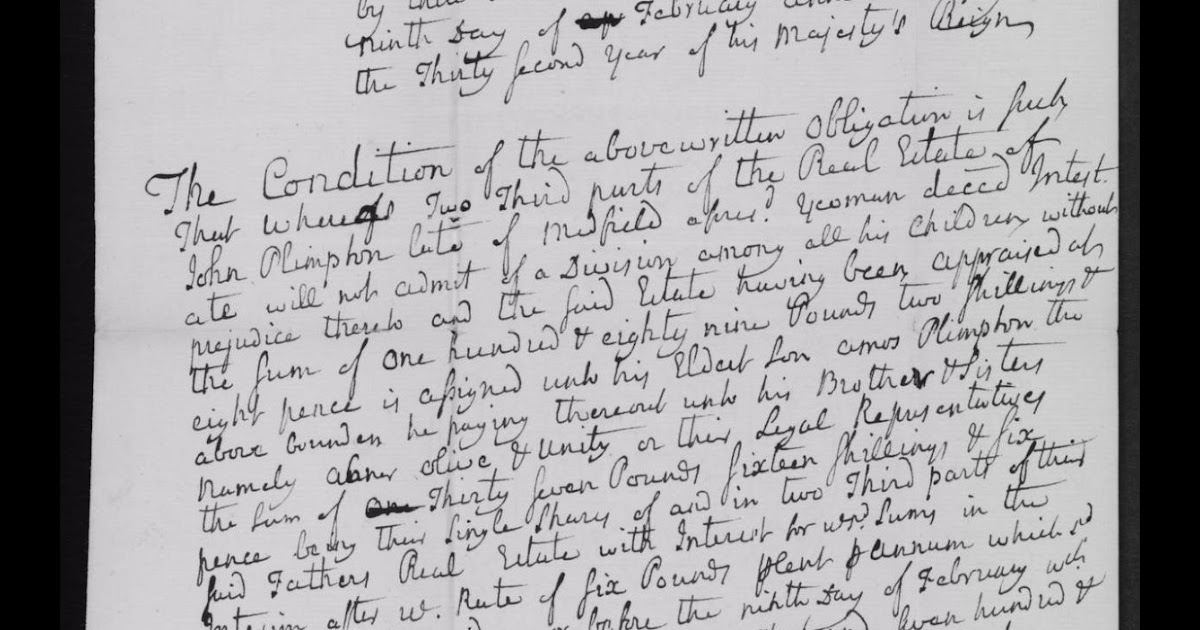 by their
ninth Day of February
the Thirty Second Year of his Majesty's Reign
The Condition of the abovewritten Obligation is such
That whereas Two Third parts of the Real Estate of
John Plimpton late of Medfield afores.d Yeoman deced Intest-
ate will not admit of a Division among all his Children without
prejudice thereto and the said Estate having been appraised at
the sum of One hundred & eighty nine Pounds two shillings &
eight pence is assigned unto his Eldest Son Amos Plimpton the
above bounden he paying thereout unto his Brother & Sisters
Namely Abner Olive & Unity or their Legal Representatives
the sum of Thirty seven Pounds sixteen shillings & six
pence being their Single Shares of and in two Third parts of their
said Fathers Real Estate with Interest for Sums in the
Interim after Rate of six Pounds pCent pannum which sd
before the ninth Day of February
hundred &